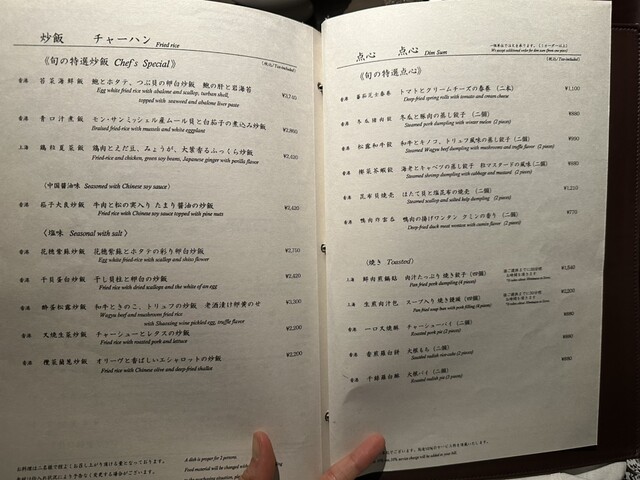 炒飯 チャーハン Fried rice
《旬の特選炒飯 Chef's Special》
(税込/Tax included)
香港 苔菜海鮮飯 鮑とホタテ、つぶ貝の卵白炒飯 鮑の肝と岩海苔 ¥3,740
Egg white fried rice with abalone and scallop, turban shell,
topped with seaweed and abalone liver paste
香港 青口汁煮飯 モン・サンミッシェル産ムール貝と白茄子の煮込み炒飯
Braised fried rice with mussels and white eggplant
上海 鶏粒夏菜飯 鶏肉とえだ豆、みょうが、大葉香るふっくら炒飯 ¥2,420
Fried rice and chicken, green soy beans, Japanese ginger with perilla flavor
〈中国醤油味 Seasoned with Chinese soy sauce〉
香港 茄子大良炒飯 牛肉と松の実入り たまり醤油の炒飯 ¥2,420
Fried rice with Chinese soy sauce topped with pine nuts
〈塩味 Seasonal with salt〉
香港 花穂紫蘇飯 花穂紫蘇とホタテの彩り卵炒飯 ¥2,750
Egg fried rice with scallop and shiso flower
香港 干貝蛋白炒飯 干し貝柱と卵白の炒飯 ¥2,420
Fried rice with dried scallops and the white of an egg
香港 酔蛋松露炒飯 和牛ときのこ、トリュフの炒飯 老酒漬け卵黄のせ ¥3,300
Wagyu beef and mushroom fried rice
with Shaoxing wine pickled egg, truffle flavor
香港 叉焼生菜炒飯 チャーシューとレタスの炒飯 ¥2,200
Fried rice with roasted pork and lettuce
香港 欖菜蘊葱炒飯 オリーヴと香ばしいエシャロットの炒飯 ¥2,200
Fried rice with Chinese olive and deep fried shallot
お料理は二名様で程よくお召し上がり頂ける量となっております。
A dish is proper for 2 persons.
Food material will be changed with
点心 点心 Dim Sum
(税込/Tax included)
《旬の特選点心》
香港 トマトとクリームチーズの春巻(二本) ¥1,100
Deep-fried spring rolls with tomato and cream cheese
香港 冬瓜猪肉餃 冬瓜と豚肉の蒸し餃子(二個) ¥880
Steamed pork dumpling with winter melon (2 pieces)
香港 松露和牛餃 和牛とキノコ、トリュフ風味の蒸し餃子(二個) ¥990
Steamed Wagyu beef dumpling with mushrooms and truffle flavor (2 pieces)
香港 椰菜芥蝦餃 海老とキャベツの蒸し餃子 粒マスタードの風味(二個) ¥880
Steamed shrimp dumpling with cabbage and mustard (2 pieces)
香港 昆布貝焼売 ほたて貝と塩昆布の焼売(二個) ¥1,210
Steamed scallop and salted kelp dumpling (2 pieces)
香港 鴨肉炸雲呑 鴨肉の揚げワンタン クミンの香り(二個) ¥770
Deep-fried duck meat wonton with cumin flavor (2 pieces)
〈焼き Toasted〉
上海 鮮肉煎鍋貼 肉汁たっぷり 焼き餃子(四個)
Pan fried pork dumpling (4 pieces)
上海 生煎肉汁包 スープ入り 焼き饅頭(四個)
Pan fried soup bun with pork filling (4 pieces)
香港 一口叉焼酥 チャーシューパイ(二個) ¥880
Roasted pork pie (2 pieces)
香港 香煎羅白餅 大根もち(二個) ¥880
Sauteed radish rice cake (2 pieces)
香港 千絲羅白酥 大根パイ(二個) ¥880
Roasted radish pie (2 pieces)
10% service charge will be added to your bill.